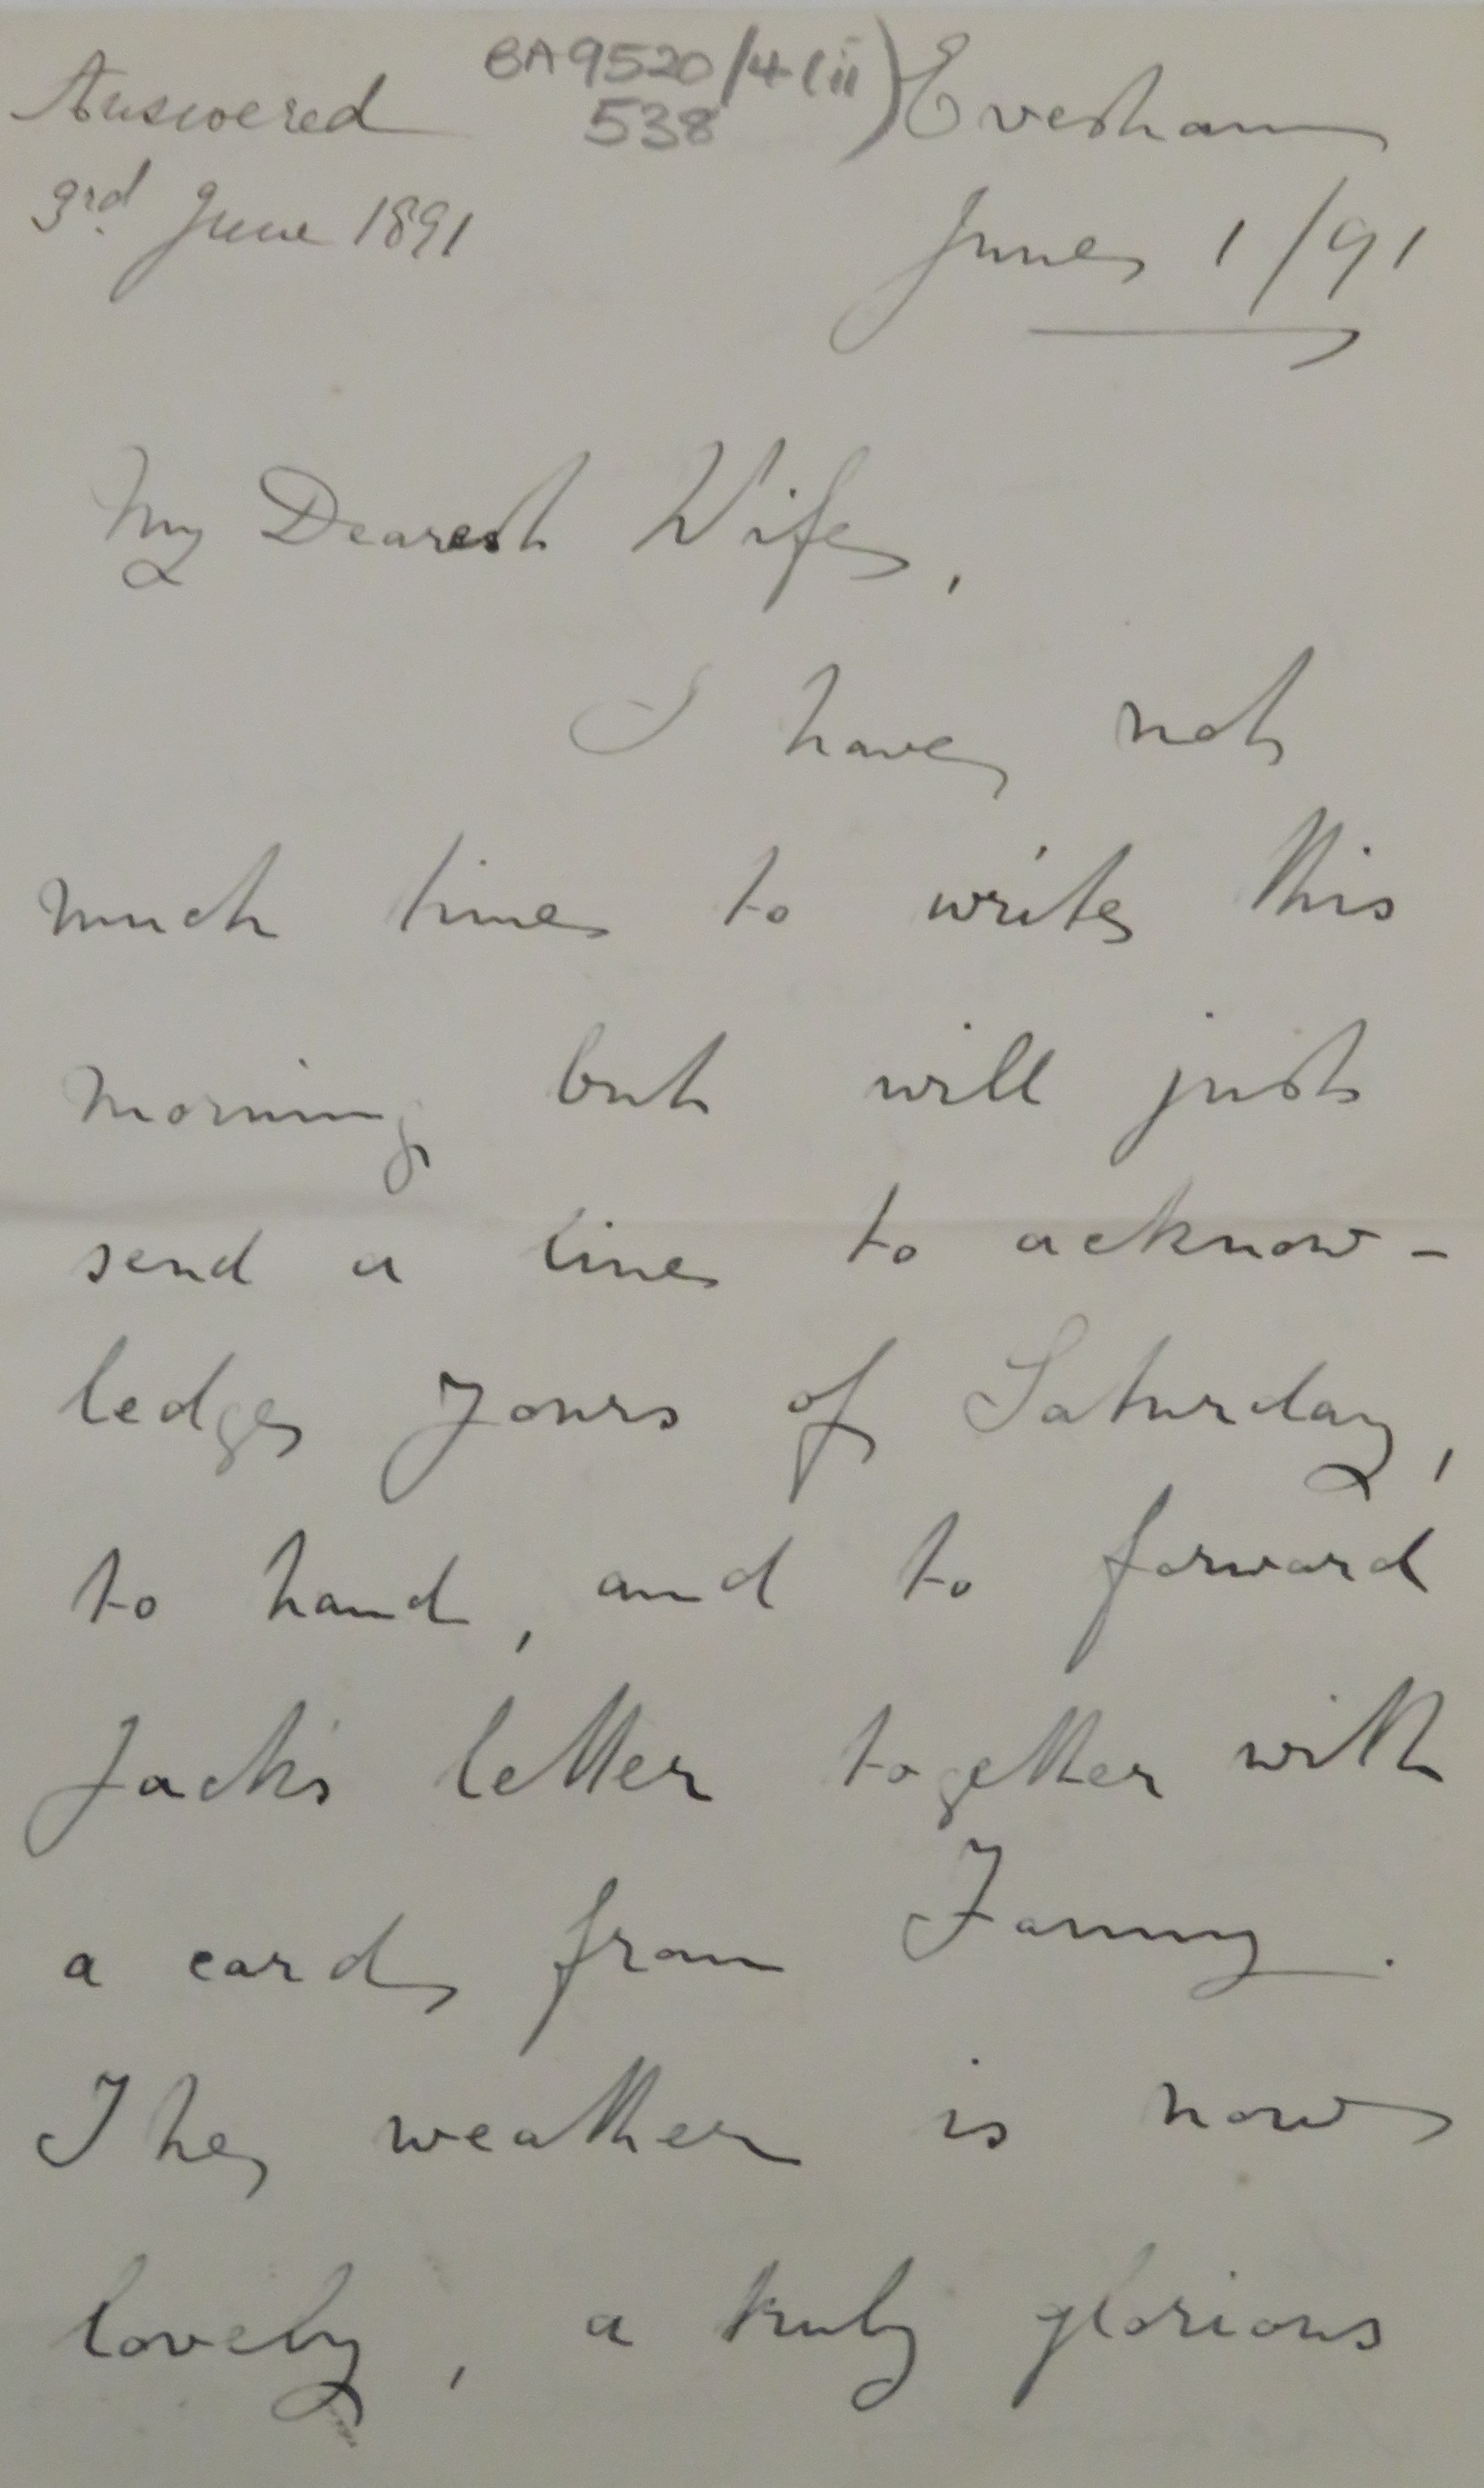 Answered
3rd. June 1891
BA9520/4(ii)
538
Evesham
June 1/91
My Dearest Wife,
I have not
much time to write this
morning but will just
send a line to acknow-
ledge yours of Saturday,
to hand, and to forward
Jack's letter together with
a card from Fanny.
The weather is now
lovely, a truly glorious